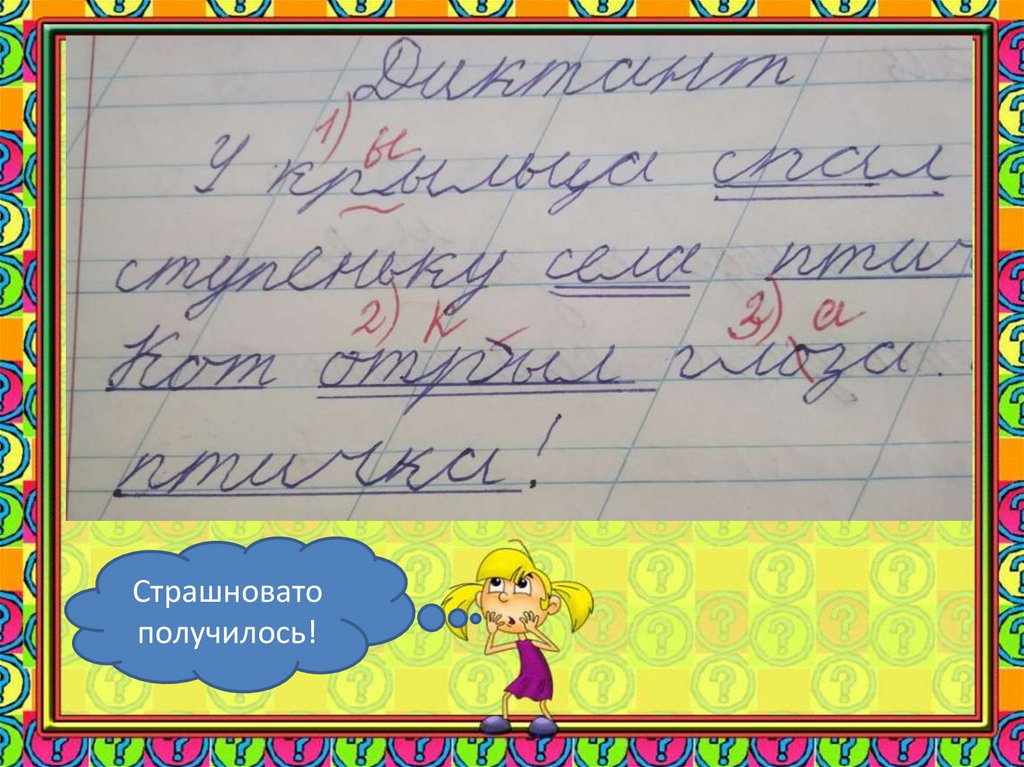 Диктант
1) ы
У крыльца спал
ступеньку села птич
2) к 3) а
Кот отрыл глоза.
птичка!
Страшновато
получилось!